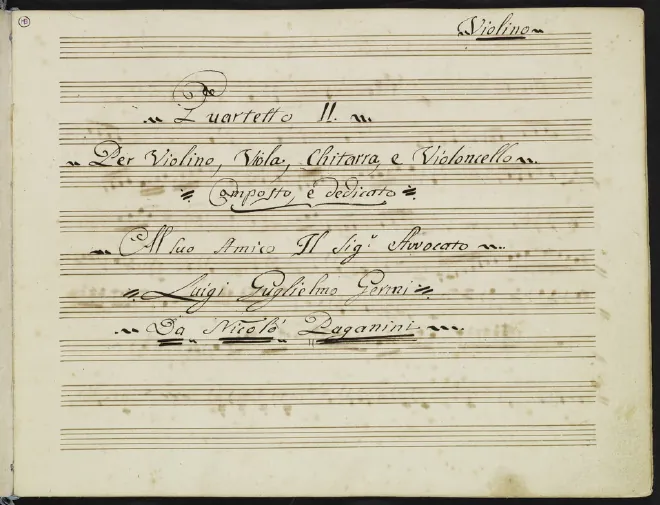 Violino
Quartetto II.
Per Violino, Viola, Chitarra, e Violoncello
Composto, e dedicato
Al suo Amico Il Sig.r Avvocato
Luigi Guglielmo Germi
Da Nicolò Paganini